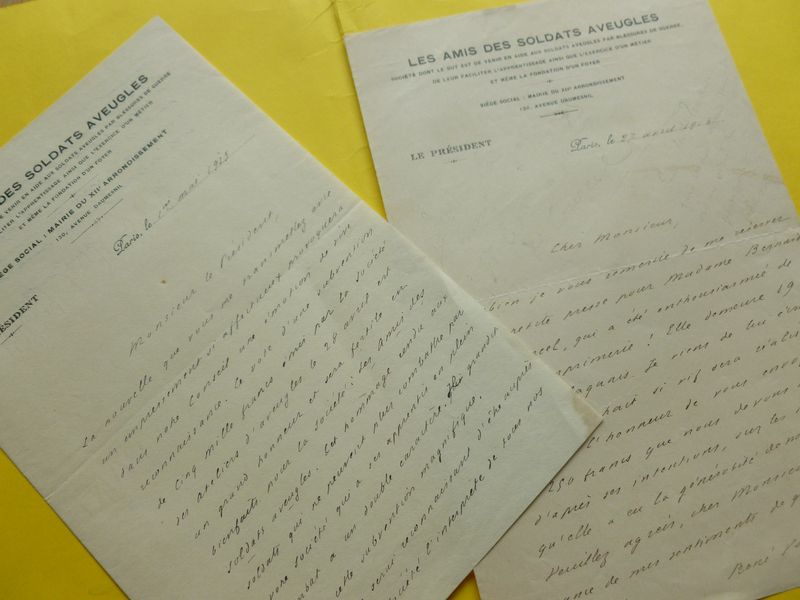 DES SOLDATS AVEUGLES
DE VENIR EN AIDE AUX SOLDATS AVEUGLES PAR BLESSURES DE GUERRE
L'APPRENTISSAGE AINSI QUE L'EXERCICE D'UN MÉTIER
ET MÊME LA FONDATION D'UN FOYER
SIÈGE SOCIAL : MAIRIE DU XIIe ARRONDISSEMENT
130, AVENUE DAUMESNIL
Paris, le 1er mai 1915
PRÉSIDENT
Monsieur le Président,
La nouvelle que vous me transmettez avec
un empressement si affectueux provoquera
dans notre Conseil une émotion de vive
reconnaissance. Le vote d'une subvention
de cinq mille francs émis par la société
des ateliers d'aveugles le 28 avril est
un grand honneur et sera fertile en
bienfaits pour la société : Les Amis des
soldats aveugles. Cet hommage rendu aux
soldats qui ne peuvent plus combattre par
votre société qui a ses apprentis en plein
combat a un double caractère. grandit
cette subvention magnifique.
serai reconnaissant d'être auprès
l'interprète de tous nos
LES AMIS DES SOLDATS AVEUGLES
SOCIÉTÉ DONT LE BUT EST DE VENIR EN AIDE AUX SOLDATS AVEUGLES PAR BLESSURES DE GUERRE,
DE LEUR FACILITER L'APPRENTISSAGE AINSI QUE L'EXERCICE D'UN MÉTIER
ET MÊME LA FONDATION D'UN FOYER
SIÈGE SOCIAL : MAIRIE DU XIIe ARRONDISSEMENT
130, AVENUE DAUMESNIL
LE PRÉSIDENT
Paris, le 27 avril
Cher Monsieur,
bien je vous remercie de me réserver
petite presse pour Madame Bernard
qui a été enthousiasmée de
! Elle demeure 19
Je viens de lui
si vif sera réalisé
l'honneur de vous
250 francs que nous devons
d'après ses intentions, sur les
qu'elle a eu la générosité de
Veuillez agréer, cher Monsieur
de mes sentiments de
René